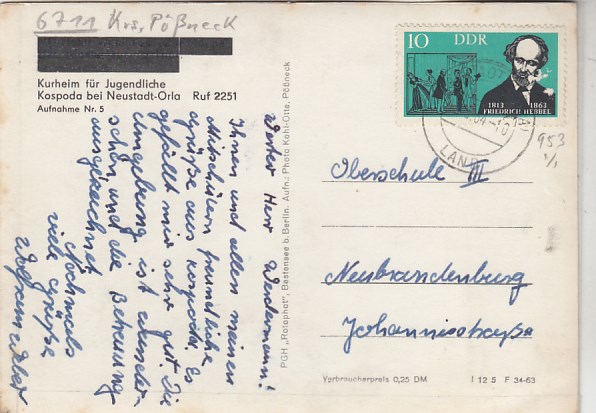 6711 Krs, Pößneck
Kurheim für Jugendliche
Kospoda bei Neustadt-Orla Ruf 2251
Aufnahme Nr. 5
Werter Herr
Ihnen und allen meinen
Mitschülern freundliche
Grüße aus Kospoda. Es
gefällt mir sehr gut. Die
Umgebung ist wunder-
schön, und die Betreuung
ausgezeichnet.
Nochmals
viele Grüße
Wolfram
PGH „Rotophot", Bestensee b. Berlin. Aufn.: Photo Kohl-Otte, Pößneck
10 DDR
1813 1863
FRIEDRICH HEBBEL
LAND
953
1/1
Oberschule III
Neubrandenburg
Johannisstraße
Verbraucherpreis 0,25 DM I 12 5 F 34-63